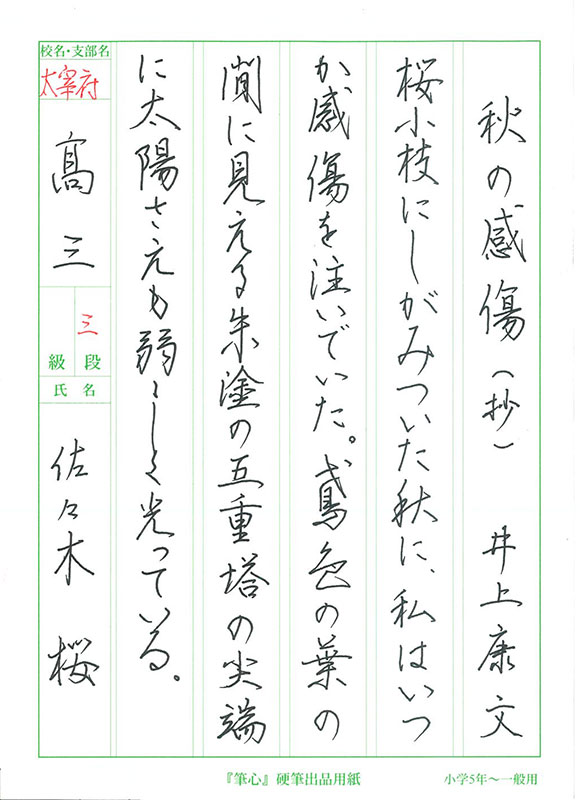 秋の感傷(抄) 井上康文
桜小枝にしがみついた秋に、私はいつ
か感傷を注いでいた。鳶色の葉の
間に見える朱塗の五重塔の尖端
に太陽さえも弱々しく光っている。
校名・支部名
太宰府
高三
三
級 段
氏名
佐々木 桜
『筆心』硬筆出品用紙
小学5年〜一般用